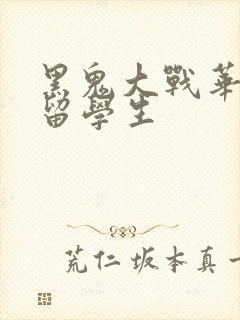 黑鬼大戰華
留學生
荒仁 坂本真一